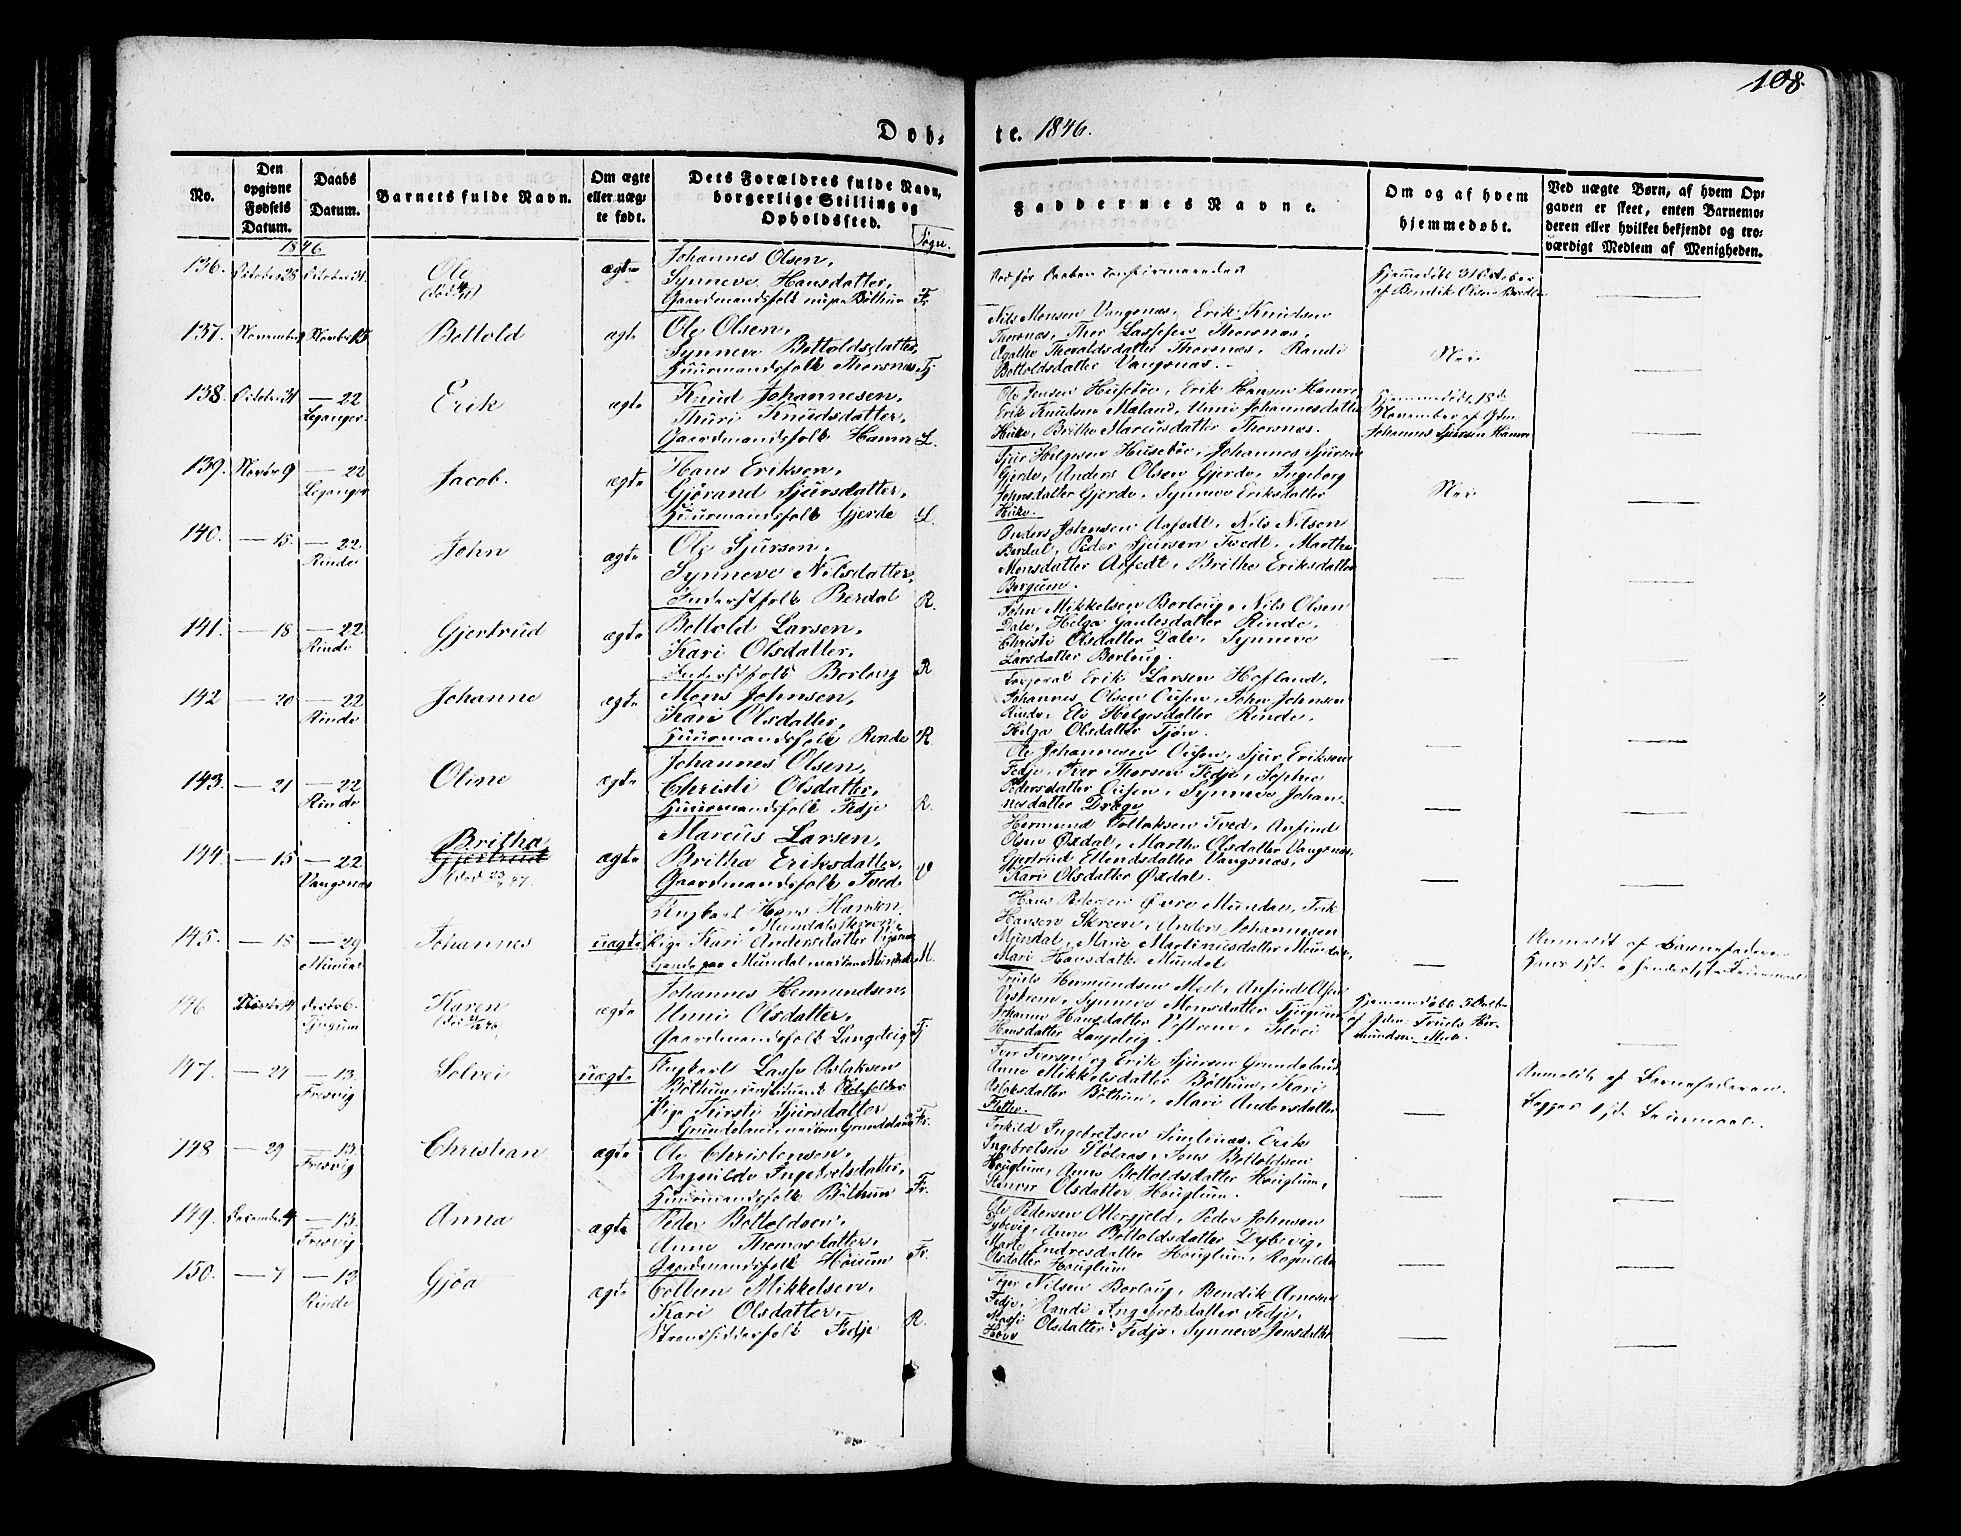 108.
Døb= te. 1846.
No.
Den opgivne Fødsels Datum.
Daabs Datum.
Barnets fulde Navn.
Om ægte eller uæg= te født.
Dets Forældres fulde Navn, borgerlige Stilling og Opholdssted.
Sogn.
Faddernes Navne.
Om og af hvem hjemmedøbt.
Ved uægte Børn, af hvem Op= gaven er skeet, enten Barnemo= deren eller hvilket bekjendt og tro= værdigt Medlem af Menigheden.
1846
136. October 28 October 31. Ole ægte
Johannes Olsen,
Synneve Hansdatter,
Gaardmandsfolk Bøthun Fr.
Hjemmedøbt 31 October
af Bendik Olsen
137. November 9 Novbr 15 Bottold ægte
Ole Olsen,
Synneve Bottoldsdatter,
Huusmandsfolk Thorsnæs Fj
Nils Monsen Vangsnæs, Erik Knudsen
Thorsnæs, Thor Lassesen Thorsnæs,
Agathe Thoraldsdatter Thorsnæs, Randi
Bottoldsdatter Vangsnæs.
Nei
138. October 31 — 22 Leganger Erik ægte
Knud Johannesen,
Thuri Knudsdatter,
Gaardmandsfolk Hamre L.
Ole Jensen Husebøe, Erik Hansen Hamre,
Erik Knudsen Mæland, Unni Johannesdatter
Britha Marcusdatter Thorsnæs.
Hjemmedøbt 18de
November af
Johannes Sjursen Hamre
139. Novbr 9 — 22 Leganger Jacob. ægte
Hans Eriksen,
Gjørand Sjursdatter,
Huusmandsfolk Gjerde L.
Sjur Helgesen Husebøe, Johannes Sjursen
Gjerde, Anders Olsen Gjerde, Ingeborg
Johnsdatter Gjerde, Synneve Eriksdatter
Nei
140. — 15. — 22 Rinde John ægte
Ole Sjursen,
Synneve Nilsdatter,
Inderstfolk Berdal R.
Anders Johnsen Aafedt, Nils Nilsen
Berdal, Peder Sjursen Tvedt, Martha
Monsdatter Aafedt, Britha Eriksdatter
Bergum.
141. — 18 — 22 Rinde Gjertrud ægte
Bottold Larsen,
Kari Olsdatter,
Inderstfolk Borlaug R
John Mikkelsen Borlaug, Nils Olsen
Dale, Helga Gautesdatter Rinde,
Christi Olsdatter Dale, Synneve
Larsdatter Borlaug.
142 — 20 — 22 Rinde Johanne ægte
Mons Johnsen,
Kari Olsdatter,
Huusmandsfolk Rinde R.
Erik Larsen Hofland,
Johannes Olsen John Johnsen
Rinde, Eli Helgesdatter Rinde,
Helga Olsdatter Tjøn.
143. — 21 — 22 Rinde Oline ægte
Johannes Olsen,
Christi Olsdatter,
Huusmandsfolk Fedje R.
Ole Johannesen Sjur Eriksen
Fedje, Iver Thorsen Fedje, Sophie
Pedersdatter Synneve Johan=
nesdatter Drage
144 — 15 — 22 Vangsnæs Britha Gjertrud ægte
Marcus Larsen,
Britha Eriksdatter,
Gaardmandsfolk Tved V
Hermund Follaksen Tved, Anfind
Olsen Øxdal, Martha Olsdatter Vangsnæs,
Gjertrud Ellendsdatter Vangsnæs,
Kari Olsdatter Øxdal.
145. — 18 — 29 Mundal Johannes uægte
Ungkarl Hans Hansen
Pige Kari Andersdatter
Mundal M.
Hans Pedersen Øvre Mundal, Erik
Hansen Skreen, Anders Johannesen
Mundal, Marie Martinusdatter Mundal,
Mari Hansdatter Mundal
Anmeldt af Barnefaderen
146 Karen ægte
Johannes Hermundsen,
Unni Olsdatter,
Gaardmandsfolk Langeteig Fj
Truels Hermundsen Mæl, Anfind Olsen
Vestrem, Synneve Monsdatter
Johanne Hansdatter Vestrem, Solvei
Hansdatter
147. — 24 — 13. Fresvig Solvei uægte
Ungkarl Lasse Aslaksen
Bøthun,
Pige Kirsti Sjursdatter
Grundeland, Fr.
Iver Iversen og Erik Sjursen Grundeland
Anne Mikkelsdatter Bøthun, Kari
Aslaksdatter Bøthun, Mari Andersdatter
Anmeldt af Barnefaderen.
Begges 1ste Leiermaal.
148 — 29 — 13. Fresvig Christian ægte
Ole Christensen,
Ragnilde Ingebretsdatter,
Huusmandsfolk Bøthun Fr.
Torkild Ingebretsen Simlenæs, Erik
Ingebretsen Jens Bottoldsen
Houglum, Anne Bottoldsdatter Houglum,
Olsdatter Houglum.
149. December 4 — 13. Fresvig Anna ægte
Peder Bottoldsen,
Anne Thomasdatter,
Gaardmandsfolk Høirum Fr.
Ole Pedersen Peder Johnsen
Dybevig, Anne Bottoldsdatter Dybevig,
Marte Endresdatter Houglum, Ragnilde
Olsdatter Houglum
150. — 7 — 13 Rinde Gjøa ægte
Colben Mikkelsen,
Kari Olsdatter,
Strandsidderfolk Fedje R.
Nilsen Borlaug, Bendik Arnesen
Fedje, Randi Ingebretsdatter Fedje,
Olsdatter Fedje, Synneve Jensdatter